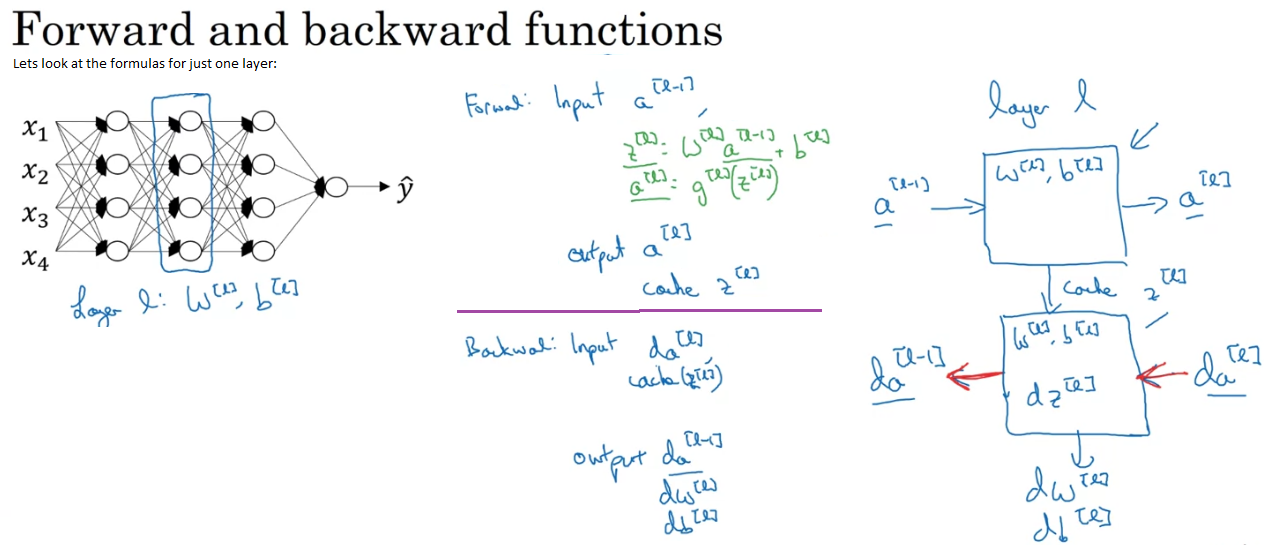 Forward and backward functions
Lets look at the formulas for just one layer:
x₁
x₂
x₃
x₄
ŷ
Layer l: W^[l], b^[l]
Forward: Input a^[l-1]
z^[l] = W^[l] a^[l-1] + b^[l]
a^[l] = g^[l](z^[l])
output a^[l]
cache z^[l]
Backward: Input da^[l]
cache (z^[l])
output da^[l-1]
dW^[l]
db^[l]
layer l
W^[l], b^[l]
a^[l-1]
a^[l]
cache z^[l]
W^[l], b^[l]
da^[l-1]
da^[l]
dz^[l]
dW^[l]
db^[l]